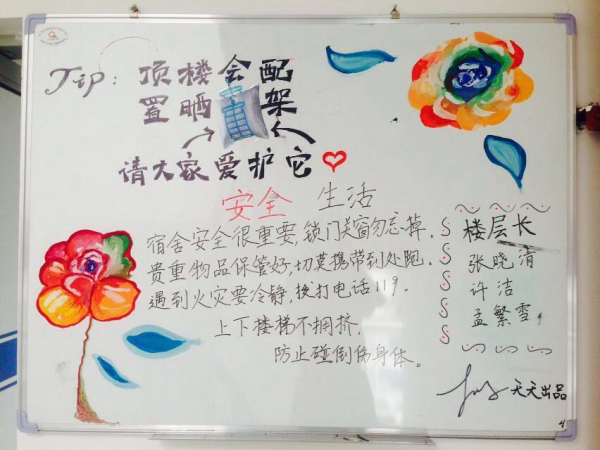 Tip: 顶楼会配
置晒架
请大家爱护它
安全 生活
宿舍安全很重要,锁门关窗勿忘掉.
贵重物品保管好,切莫携带到处跑.
遇到火灾要冷静,拨打电话119。
上下楼梯不拥挤.
防止碰倒伤身体。
楼层长
张晓清
许洁
孟繁雪
天天出品